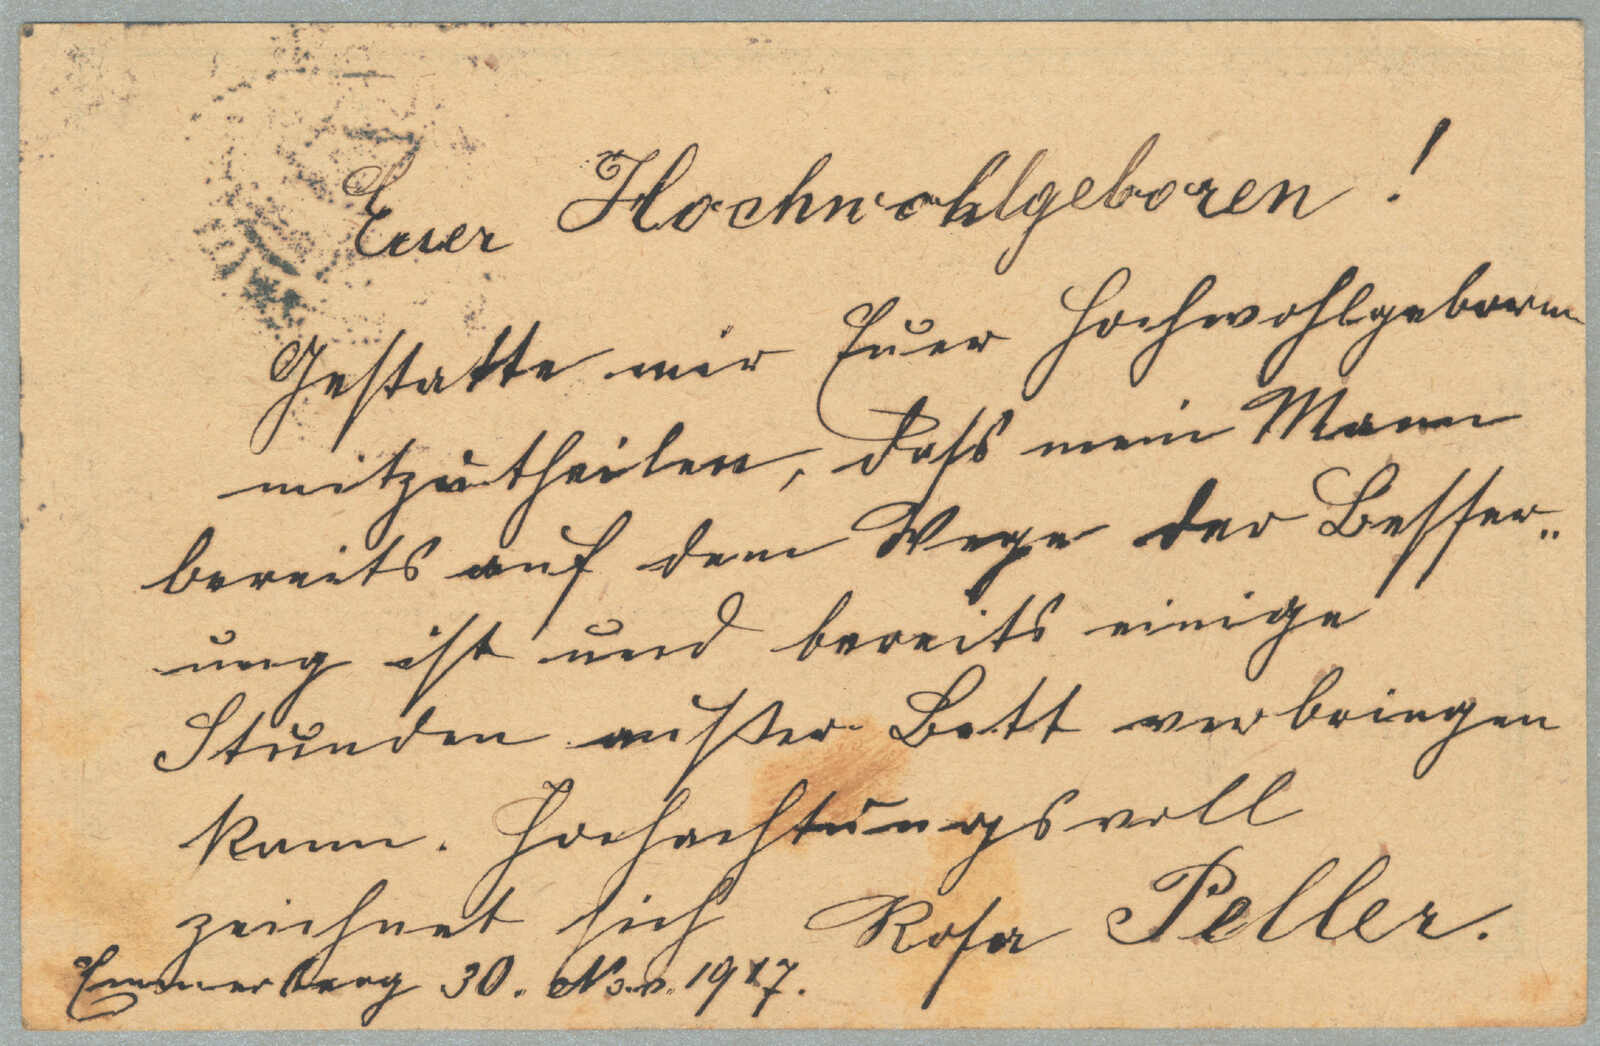 Euer Hochwohlgeboren!
Gestatte mir Euer Hochwohlgeboren
mitzutheilen, dass mein Mann
bereits auf dem Wege der Besser„
ung ist und bereits einige
Stunden außer Bett verbringen
kann. Hochachtungsvoll
zeichnet sich Rosa Peller.
Emmerberg 30. Nov. 1917.